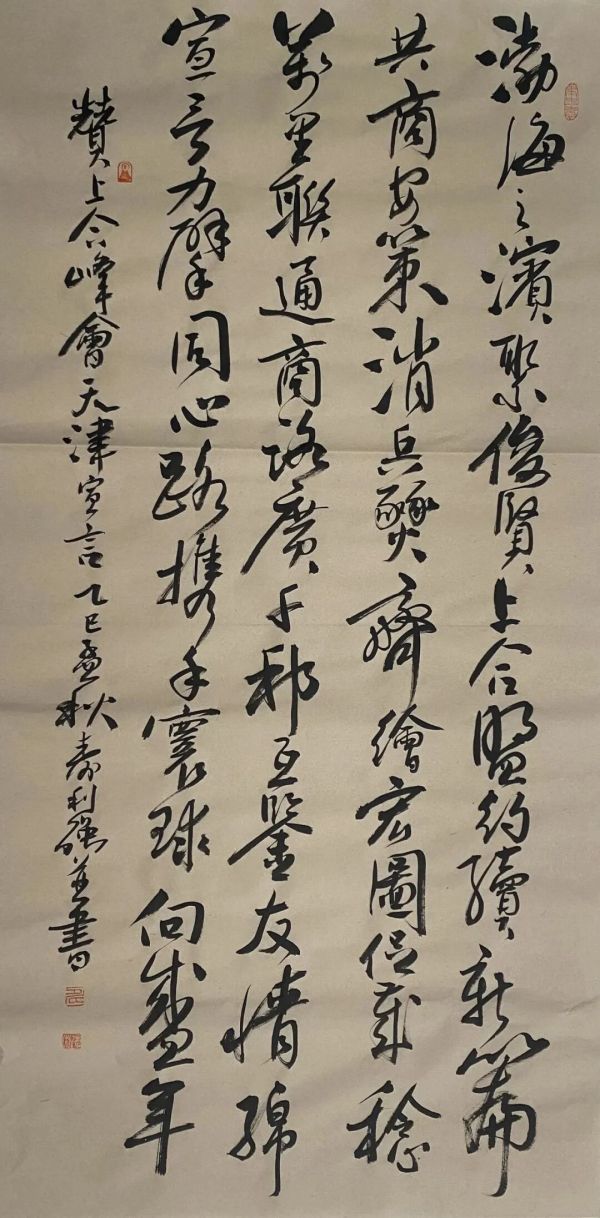 渤海之濱聚俊賢上合盟約續新篇
共商安策消兵燹齊繪宏圖促歲稔
萬里聯通商路廣千邦互鑒友情綿
宣言力擘同心路携手寰球向盛年
贊上合峰會天津宣言乙巳孟秋利強並書